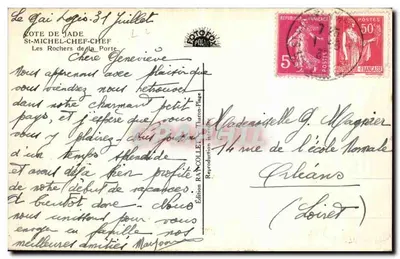 Le Gai Logis 31 Juillet
COTE DE JADE
St-MICHEL-CHEF-CHEF
Les Rochers de la Porte
Chère Geneviève
Nous apprenons avec plaisir que
vous viendrez nous retrouver
dans notre charmant petit
pays, et j'espère que vous
vous y plairez
d'un temps splendide
et avons déjà bien profité
de notre début de vacances.
A bientôt donc. Nous
nous unissons pour vous
envoyer en famille nos
meilleures amitiés
Mademoiselle G.
14 rue de l'école Normale
Orléans
(Loiret)
5
POSTES
50c